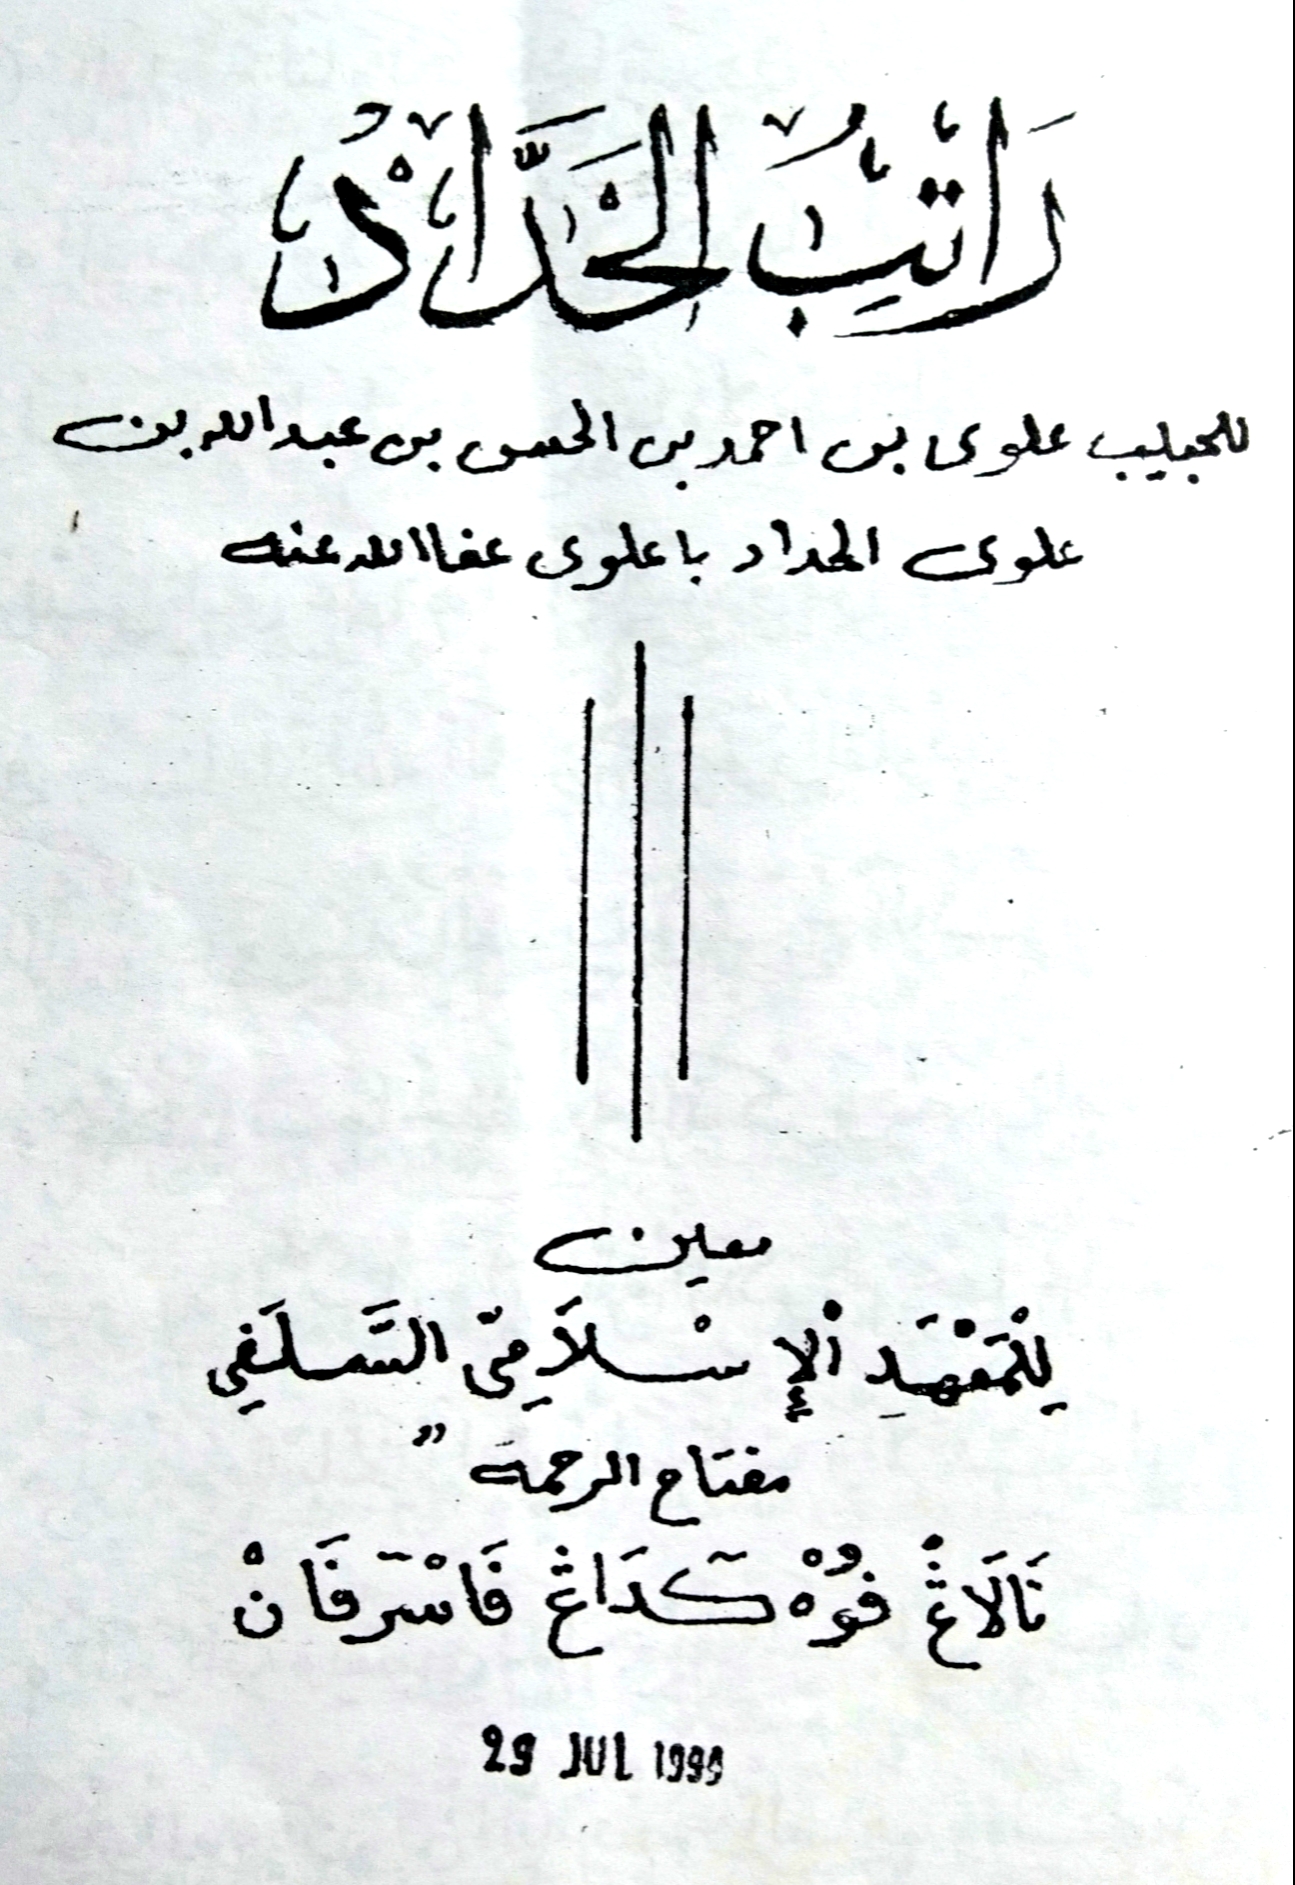 رَاتِبُ الْحَدَّادْ
للحبيب علوى بن احمد بن الحسن بن عبد الله بن
علوى الحداد با علوى عفا الله عنه
معين
لِلْمَعْهَدِ اْلإِسْلاَمِيّ السَّلَفِي
مفتاح الرحمة "
تَالَاڠْ فُوْهْ كَدَاڠْ فَاسْرَفَانْ
29 JUL 1999